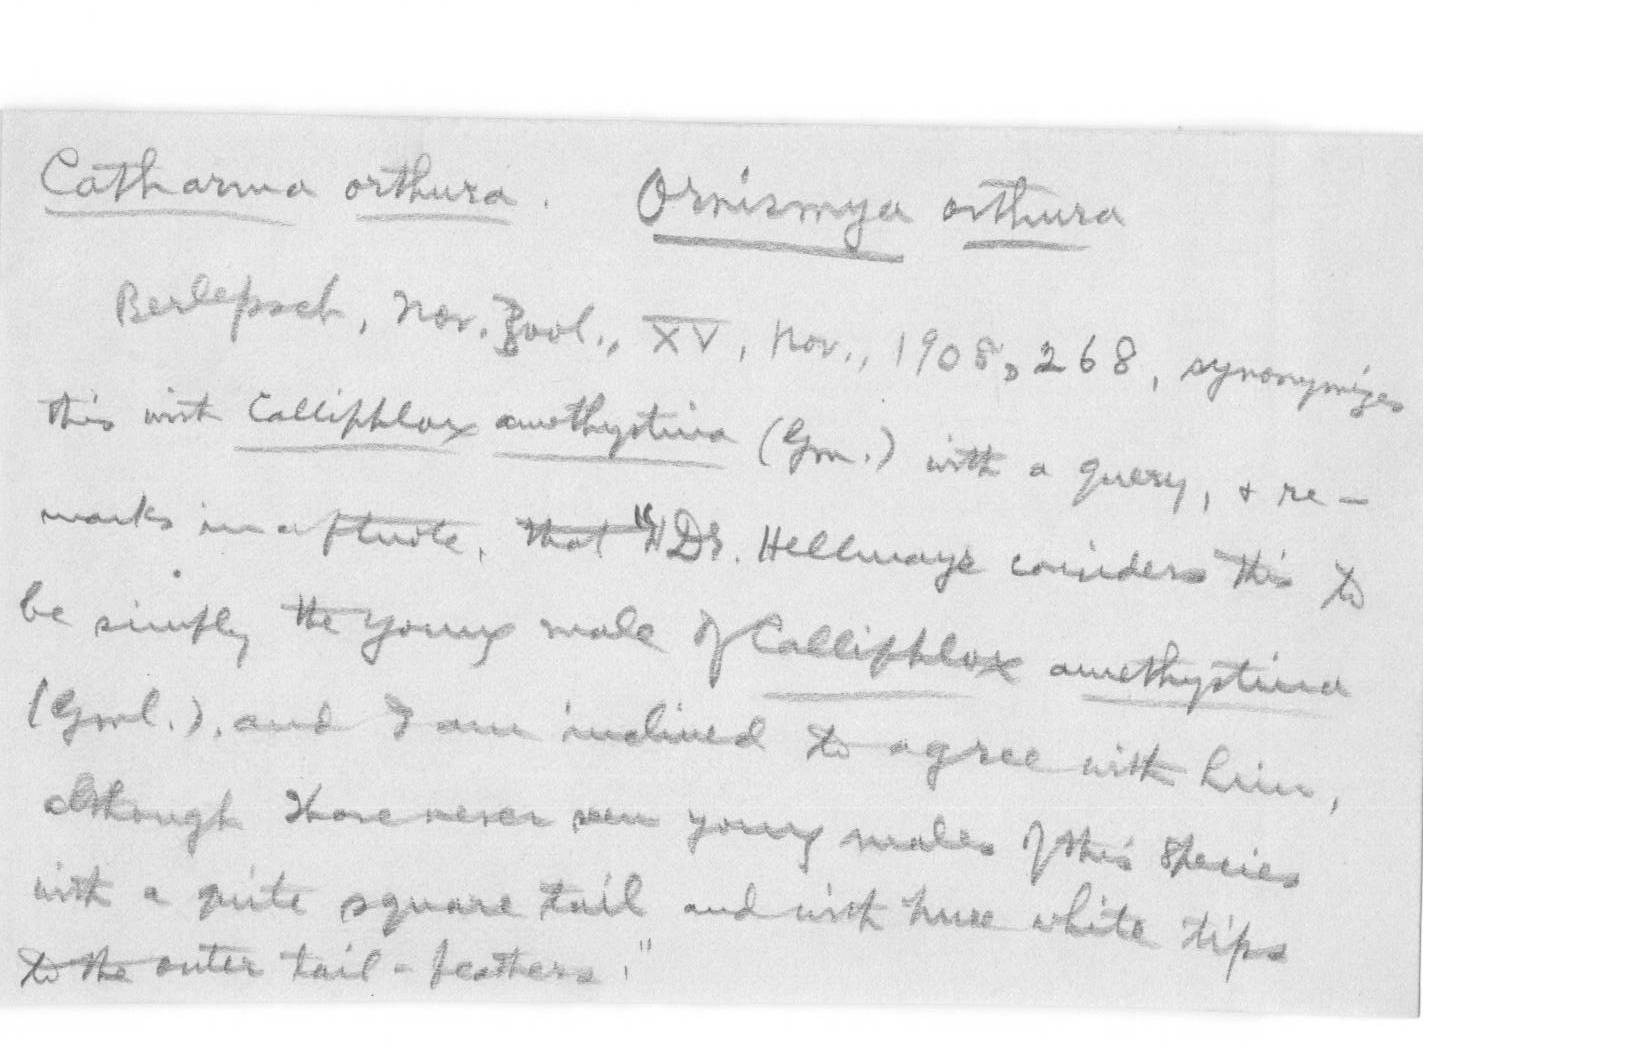 Catharma orthura. Ornismya orthura
Berlepsch, Nov. Zool., XV, Nov., 1908, 268, synonymizes
this with Calliphlox amethystina (Gm.) with a query, & re-
marks in a ftnote, that "Dr. Hellmayr considers this to
be simply the young male of Calliphlox amethystina
(Gml.), and I am inclined to agree with him,
although I have never seen young males of this species
with a quite square tail and with pure white tips
to the outer tail-feathers."